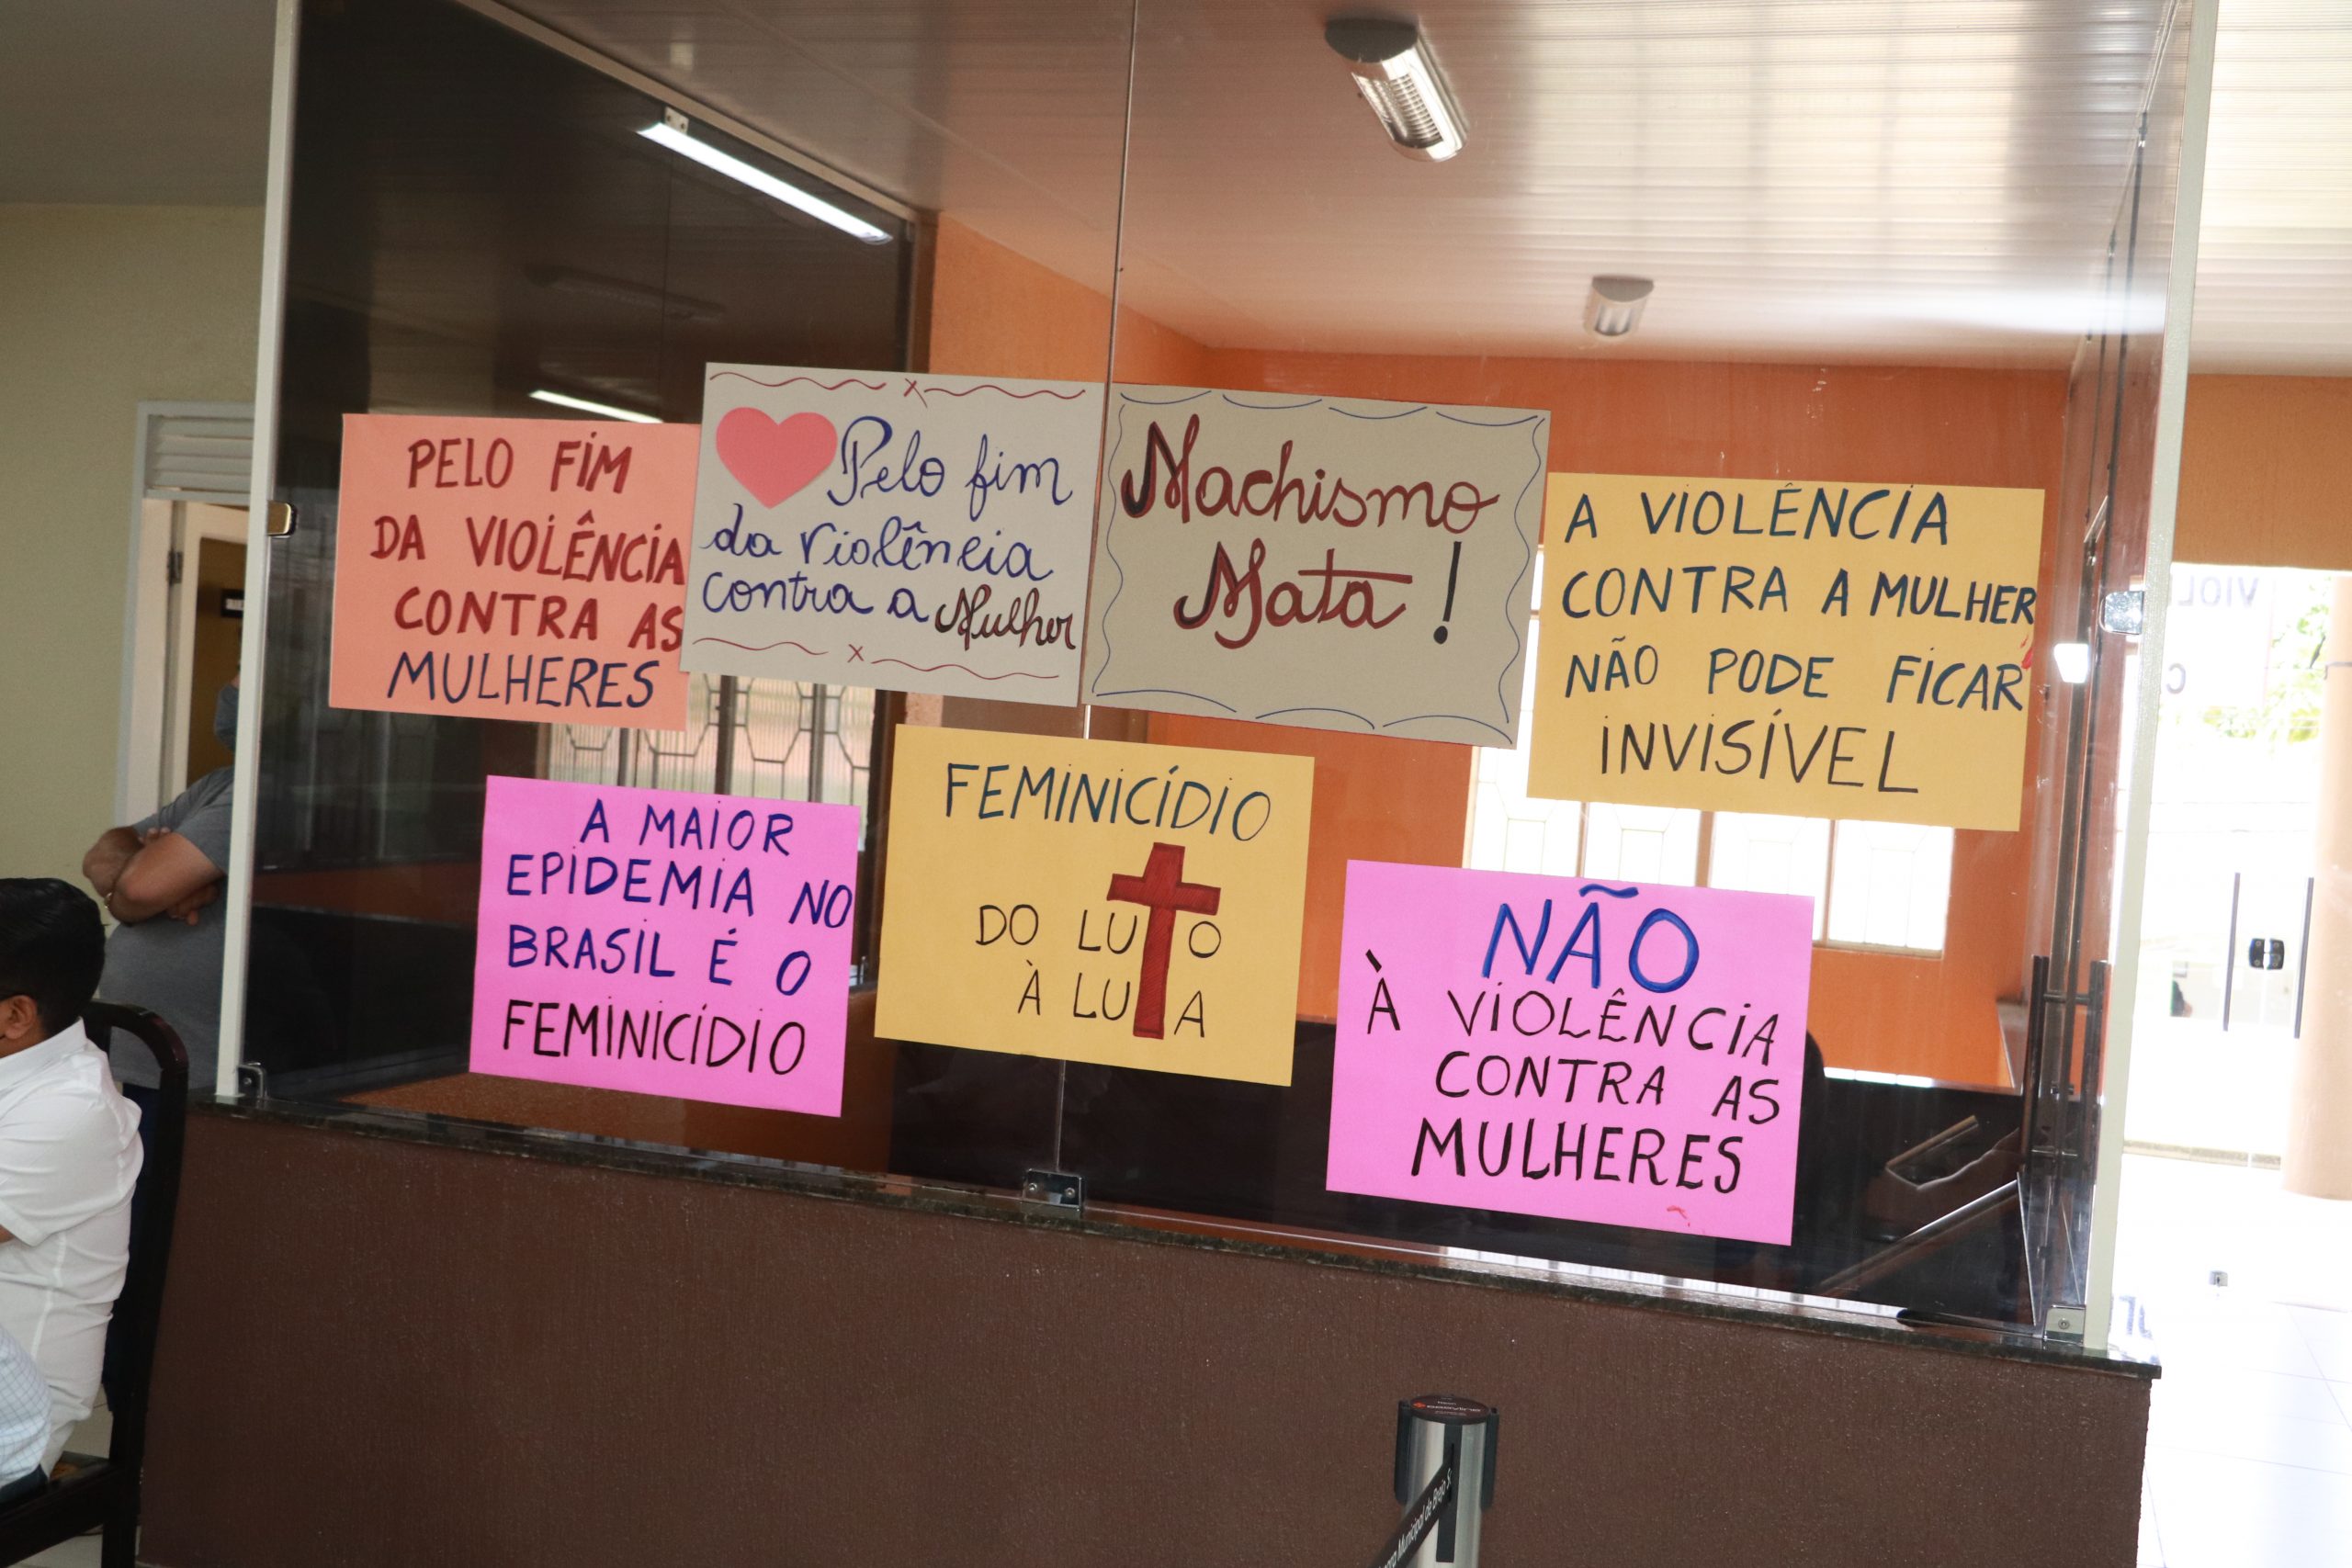 PELO FIM
DA VIOLÊNCIA
CONTRA AS
MULHERES
Pelo fim
da violência
contra a Mulher
Machismo
Mata!
A VIOLÊNCIA
CONTRA A MULHER
NÃO PODE FICAR
INVISÍVEL
A MAIOR
EPIDEMIA NO
BRASIL É O
FEMINICÍDIO
FEMINICÍDIO
DO LUTO
À LUTA
NÃO
À VIOLÊNCIA
CONTRA AS
MULHERES
Municipal de